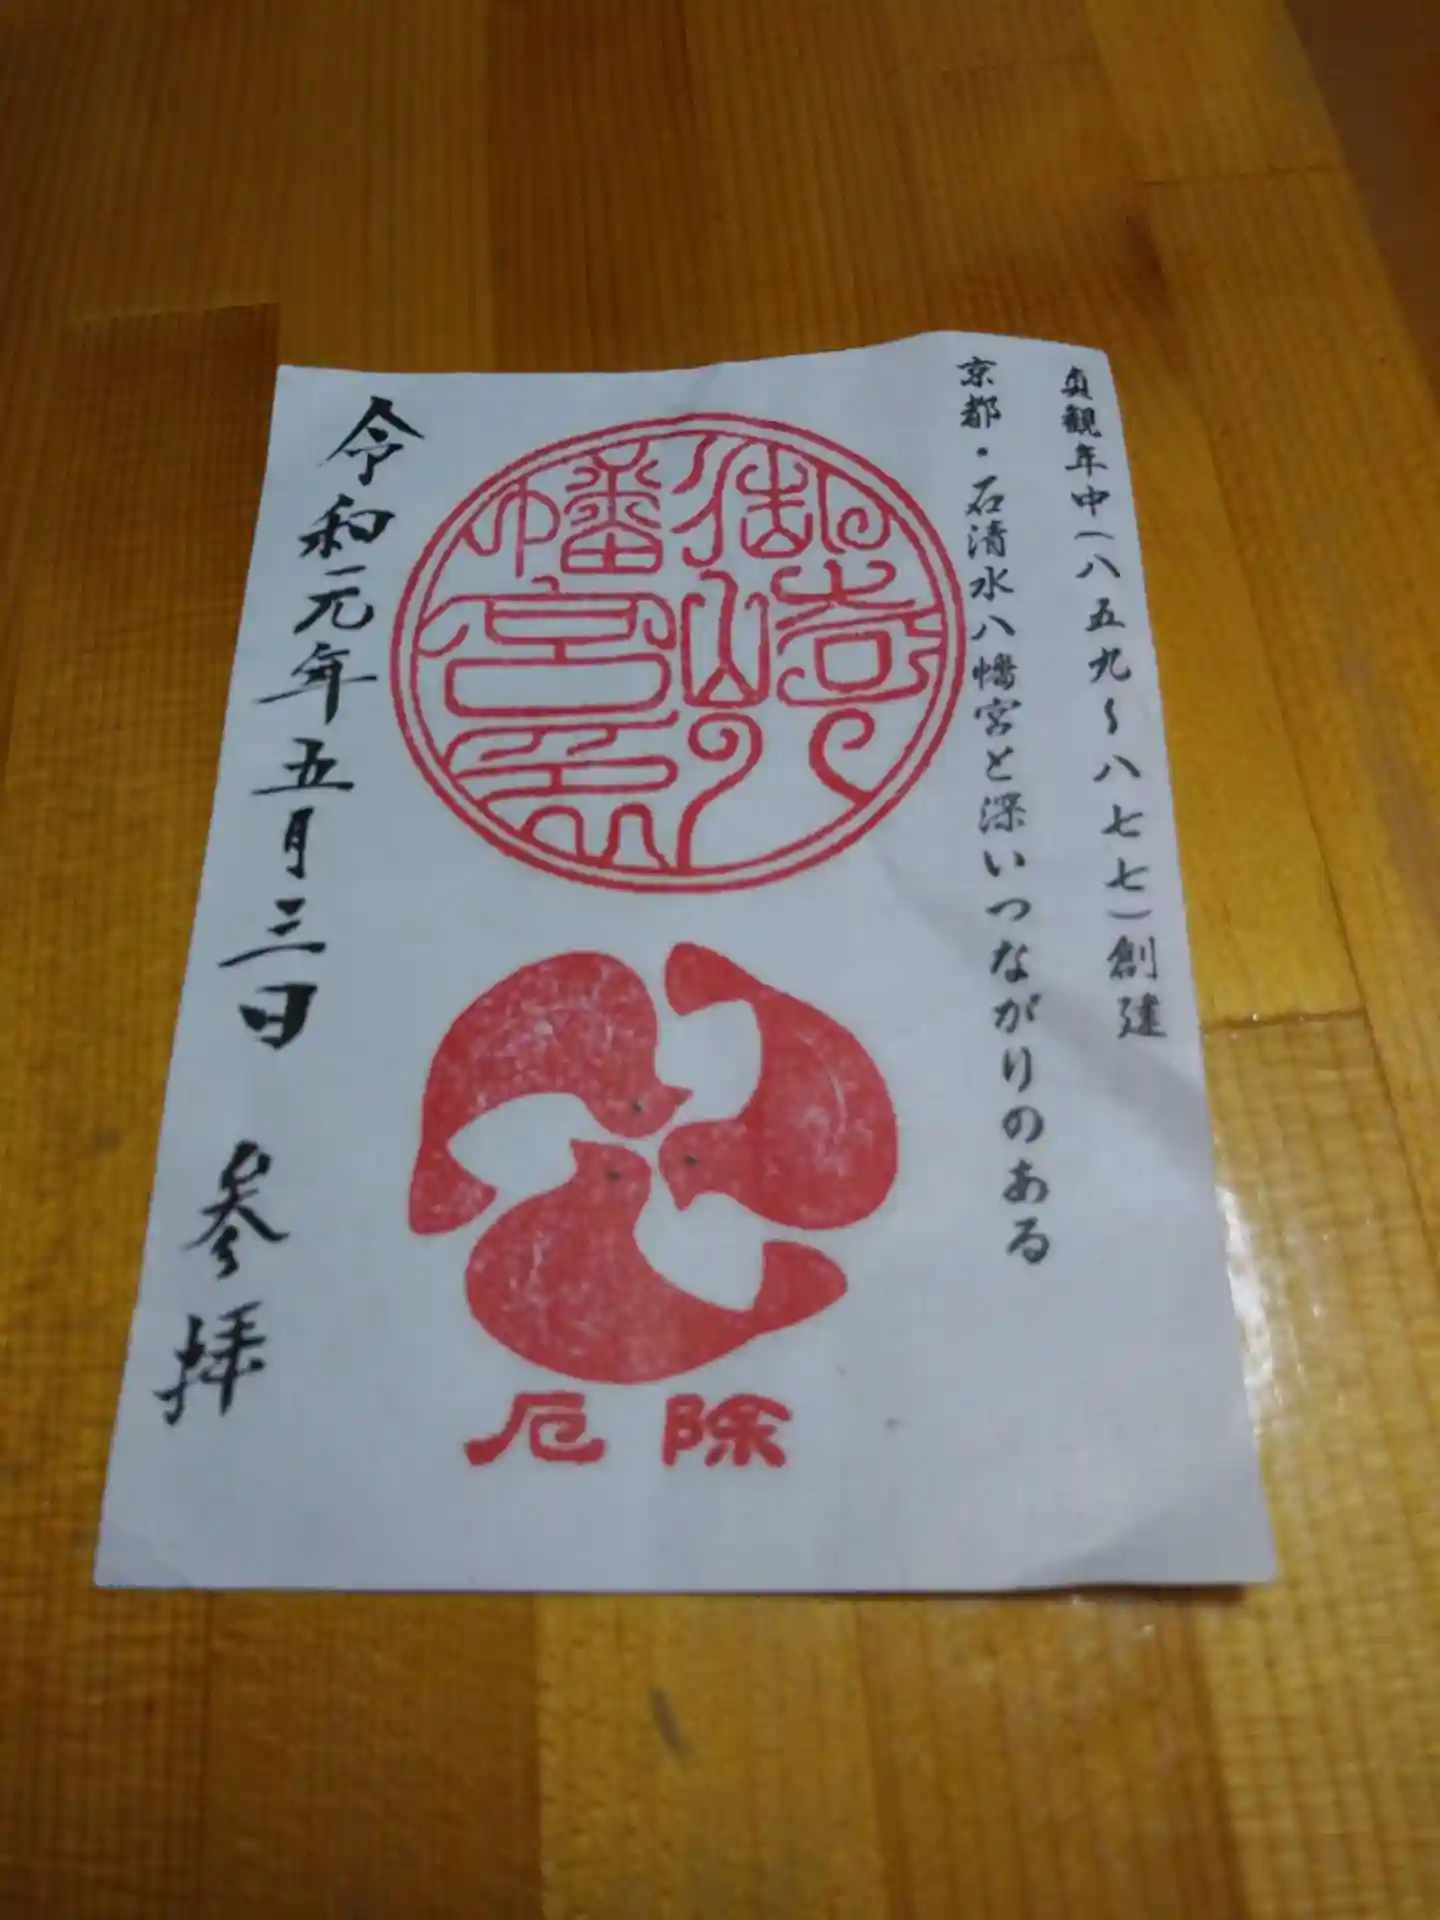 貞観年中(八五九〜八七七)創建
京都・石清水八幡宮と深いつながりのある
御崎八
幡宮印
厄除
令和元年五月三日 参拝